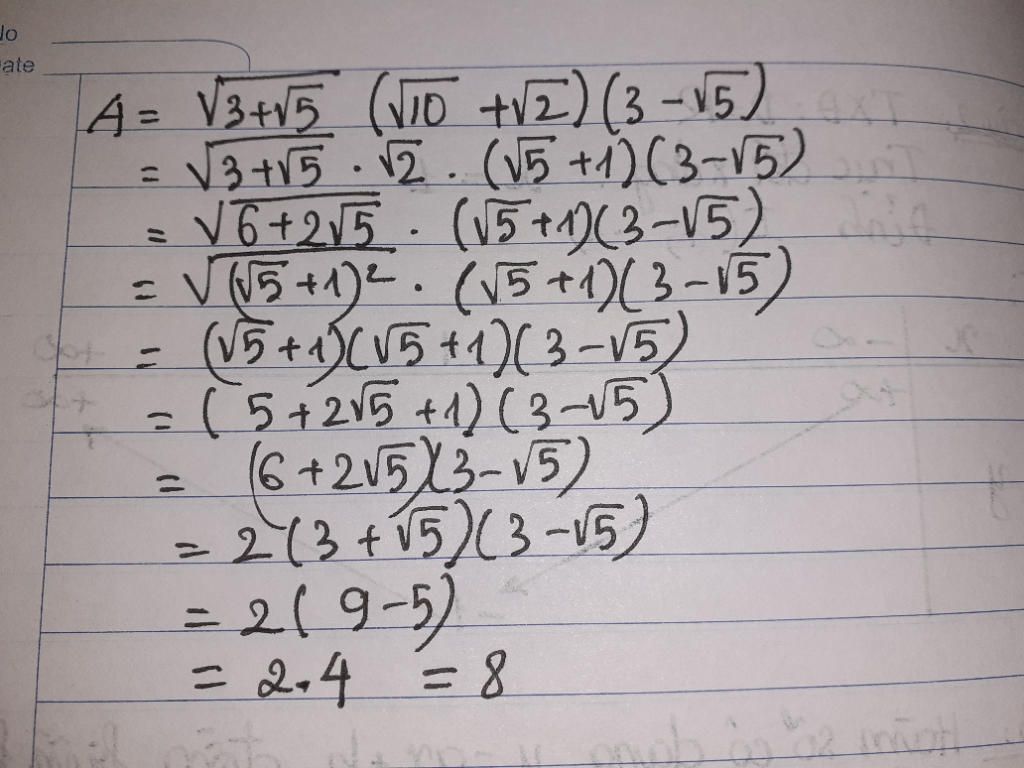 No
Date
A = √(3+√5) (√10 + √2)(3 - √5)
= √(3+√5) . √2 . (√5 + 1)(3 - √5)
= √(6+2√5) . (√5+1)(3-√5)
= √((√5+1)²) . (√5+1)(3-√5)
= (√5+1)(√5+1)(3-√5)
= (5+2√5+1)(3-√5)
= (6+2√5)(3-√5)
= 2(3+√5)(3-√5)
= 2(9-5)
= 2.4 = 8